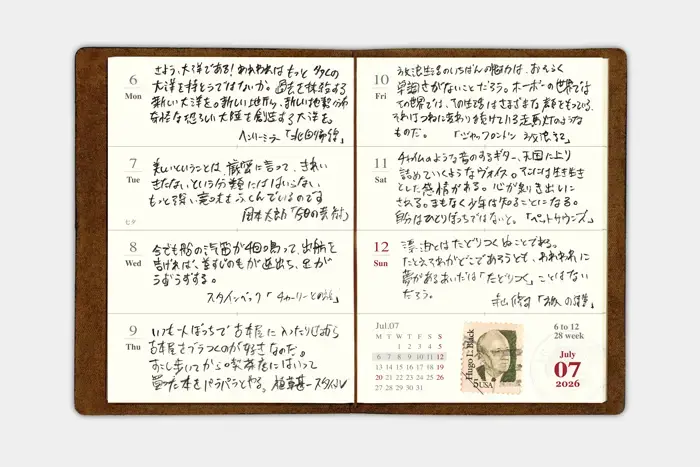 6
Mon
さよう、大洋である！われわれはもっと多くの
大洋を持とうではないか。過去を抹殺する
新しい大洋を。新しい地質、新しい
大陸を創造する大洋を。
ヘンリー・ミラー「北回帰線」
7
Tue
七夕
美しいということは、厳密に言って、きれい
きたないという分類にはまいらない、
もっと深い意味をふくんでいるのです
岡本太郎「今日の芸術」
8
Wed
今でも船の汽笛が4回鳴って、出帆を
告げれば、首すじのもが逆立ち、足が
うずうずする。
スタインベック「チャーリーとの旅」
9
Thu
いつも一人ぼっちで古本屋に入ったりしながら
古本屋をブラつくのが好きなのだ。
すこし歩いてから喫茶店にはいって
買った本をパラパラとやる。植草甚一スタイル
10
Fri
放浪生活のいちばんの魅力は、おそらく
単調さがないことだろう。ホーボーの世界では
その生活はさまざまな顔をもっている、
それはつねに変わり続けている走馬灯のような
ものだ。「ジャック・ロンドン放浪記」
11
Sat
チャイムのような音のするギター、天国に上り
詰めていくようなヴォイス。そこには生き生き
とした感情がある。心が剝き出しに
される。まもなく少年は知ることになる。
自分はひとりぼっちではないと。「ペット・サウンズ」
12
Sun
漂泊とはたどりつくぬことである。
たとえそれがどこであろうとも、われわれに
夢があるあいだは「たどりつく」ことはない
だろう。
寺山修司
Jul.07
M T W T F S S
1 2 3 4 5
6 7 8 9 10 11 12
13 14 15 16 17 18 19
20 21 22 23 24 25 26
27 28 29 30 31
Hugo L. Black
5 USA
6 to 12
28 week
July
07
2026